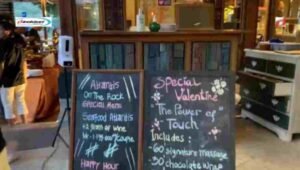 Atlantis
On The Rock
Special Menu
Seafood Atlantis
+ 2 glass of wine
Happy Hour
Special
Valentine
"The Power of
Touch"
Includes:
60 signature massage
30 chocolate wine